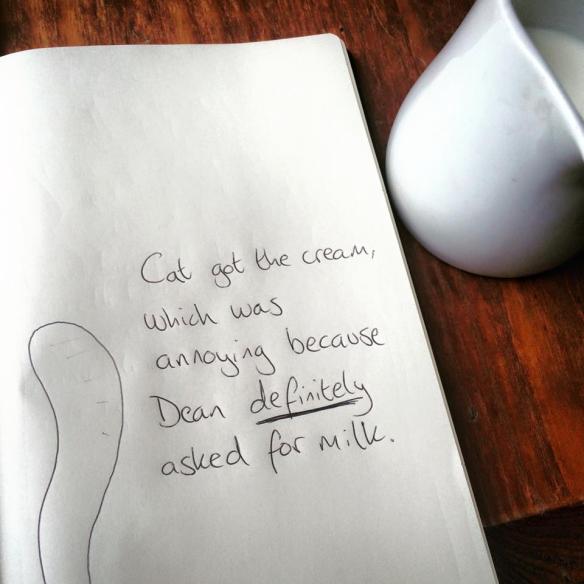 Cat got the cream,
which was
annoying because
Dean definitely
asked for milk.